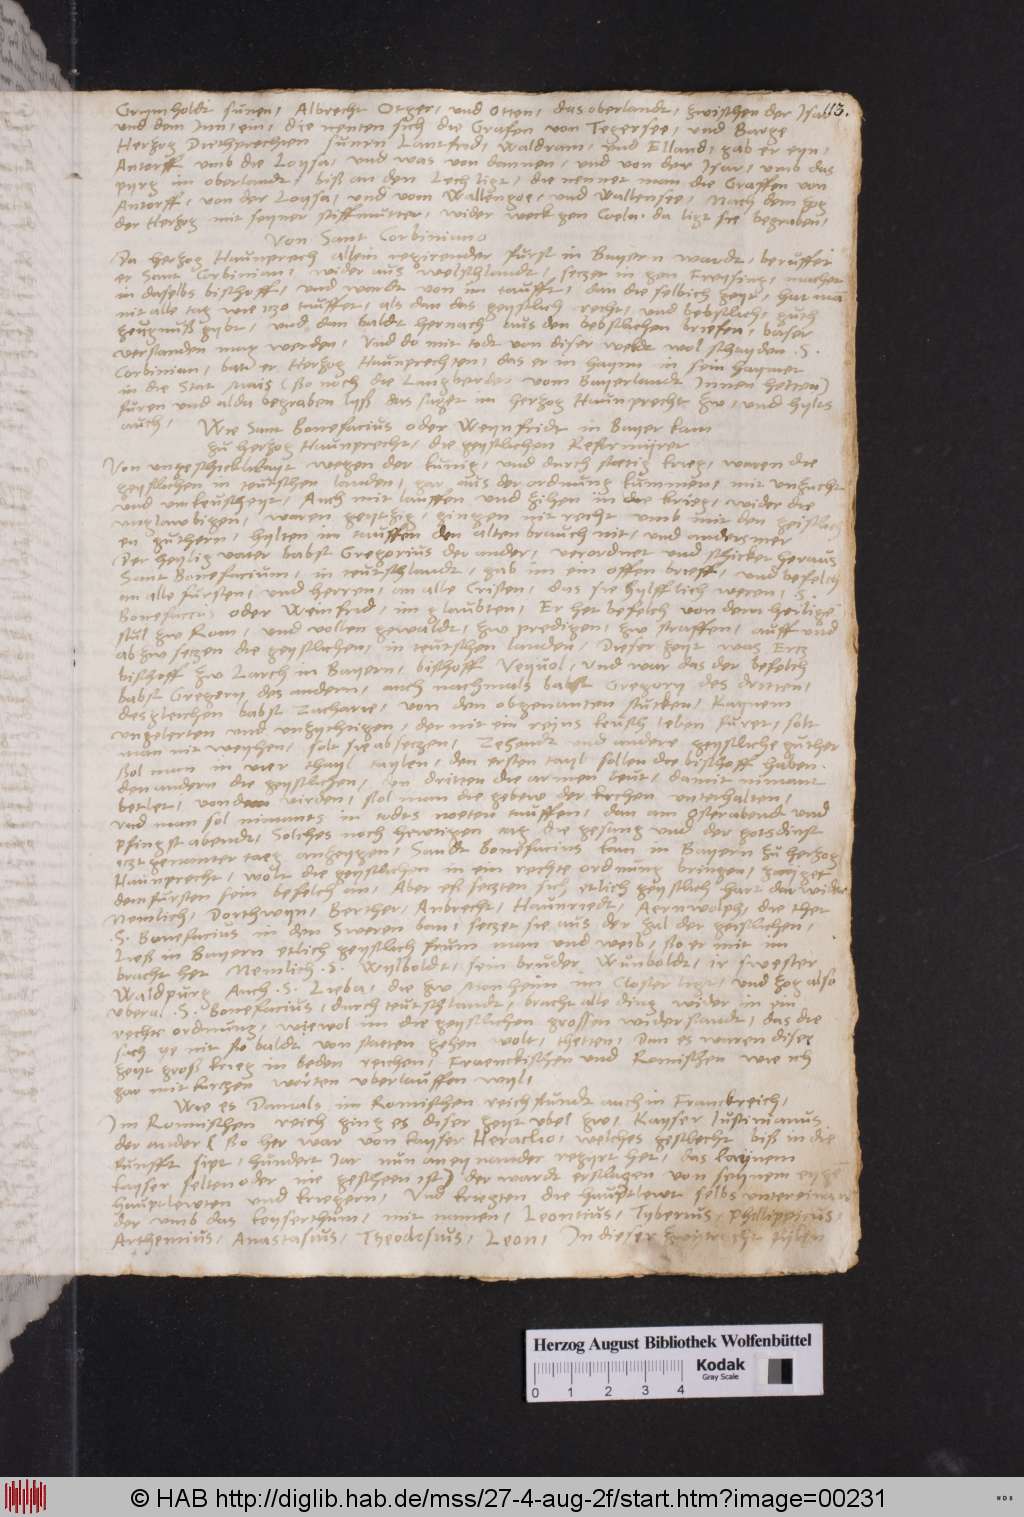 Grymholdt sunen, Albrecht Otger, und Otten, das oberlandt, zwischen der Isar 113.
und dem Inn, ein, die nenten sich die Grafen von Tegersee, und Warge
Hertzog Diethprechten sunen Lantfrid, Waldram, und Elland, gab er eyn,
Antorff umb die Loysa, und was von dannen, und von der Isar, umb das
pyrg im oberlandt, biß an den Lech ligt, die nennet man die Graffen von
Antorff, von der Loysa, und vom Wallengoe, und Wallensee, Nach dem zog
der Hertzog mit seyner stiffmutter, wider weck gen Coeln, da ligt sie begraben,
Von Sant Corbiniano
Da hertzog Haunprech allein regirender furst in Bayern wardt, beruffet
er Sant Corbinian, wider aus welschlandt, setzet in gen Freising, machet
in daselbs bischoff, und wardt von im taufft, dan die selbich zeyt, hat ma
nit alle tag wie itzo tauffet, als dan das geystlich recht, und bebstlich, guth
zeugnuß gybt, und dan baldt hernach aus den bebstlichen briefen, baser
verstanden mag werden, Und do mit todt von diser welt wol schayden .S.
Corbinian, bat er Hertzog Haunprechten, das er in haym in sein haymet
in die Stat Mais (ßo noch die Langberder vom Bayerlandt Innen hetten)
furen und alda begraben lyß das saget im hertzog Haunprecht zw, und hylts
auch, Wie Sant Bonefacius oder Weynfridt in Bayer kam
zu hertzog Haunprecht, die geystlichen Reformyret
Von ungeschicklikayt wegen der kunig, und durch staetig krieg, waren die
geystlichen in teutschen landen, gar aus der ordnung kummen, mit unzucht
und unkeuscheyt, Auch mit lauffen und zihen in die krieg, wider die
unglawbigen, waren geytzig, gingen nit recht umb mit den geistlich
en guthern, hylten im tauffen den alten brauch nit, und anders mer
Der heylig vater babst Gregorius der ander, verordnet und schicket heraus
Sant Bonefacium, in teutschlandt, gab im ein offen brieff, und befelch
an alle fursten, und herren, an alle Cristen, das sie hylfflich weren, .S.
Bonefacius oder Weinfrid, im glaubten, Er het befelch von dem heilige
stul zw Rom, und vollen gewaldt, zw predigen, zw straffen, auff und
ab zw setzen die geystlichen, in teutschen landen, Dieser zeyt was Ertz
bischoff zw Larch in Bayern, bischoff Veyuol, und war das der befelch
babst Gregory des andern, auch nachmals babst Gregory des dritten,
desgleichen babst Zacharie, von den obgenanten stucken, Kaynem
ungelerten und unzychtigen, der nit ein reyns keusch leben furet, solt
man nit weyhen, solt sie absetzen, Zehendt und andere geystliche guther
ßol man in vier thayl taylen, den ersten tayl sollen die bischoff haben.
den andern die geystlichen, den dritten die armen leut, damit nimant
betlet, von dem virden, ßol man die gebew der kirchen unterhalten,
und man sol nimants in todts noeten tauffen, dan am Osterabendt und
pfingstabendt, Solches noch hewtigen tag die gesung und der gotsdinst
itzt genanter taeg anzeygen, Sandt Bonefacius kam in Bayern zu hertzog
Haunprecht, wolt die geystlichen in ein rechte ordnung bringen, zayget
dem fursten sein befelch an, Aber eß setzten sich etlich geystlich hart darwider
nemlich, Dorthwyn, Berther, Anbrecht, Haunriedt, Aernwolph, die thet
.S. Bonefacius in den Sweren ban, setzet sie aus der zal der geystlichen,
Ließ in Bayern etlich geystlich frum man und weib, ßo er mit im
bracht het Nemlich .S. Wylboldt, sein bruder Wunboldt, ir swester
Waldpurg Auch .S. Lieba, die zw Monheim im Closter ligt, und zog also
uberal .S. Bonefacius, durch teutschlandt, bracht alle ding wider in ein
rechte ordnung, wiewol im die geystlichen grossen widerstandt, das die
sach ye nit ßo baldt von staeten gehen wolt, thetten, Dan es waren diser
zeyt groß krieg in beden reichen, Fraenckischen und Romischen wie ich
gar mit kurtzen worten uberlauffen wyl,
Wie es Damals im Romischen reich stundt auch in Franckreich,
Im Romischen reich ging es diser zeyt ubel zw, Kayser Iustinianus
der ander (ßo her war von kayser Heraclio, welches geschlecht biß in die
funfft sipt, hundert Iar nun an eynander regyrt het, das kaynem
kayser selten oder nie gescheen ist) der wardt erschlagen von seynem eyge
hauptlewten und kriegern, Und kriegten die hauptlewt selbs untereinan
der umb das keyserthum, mit namen, Leontius, Tyberius, Phillippicus,
Arthemius, Anastasius, Theodosius, Leon, In dieser zwytracht
Herzog August Bibliothek Wolfenbüttel
0 1 2 3 4
Kodak
Gray Scale
© HAB http://diglib.hab.de/mss/27-4-aug-2f/start.htm?image=00231